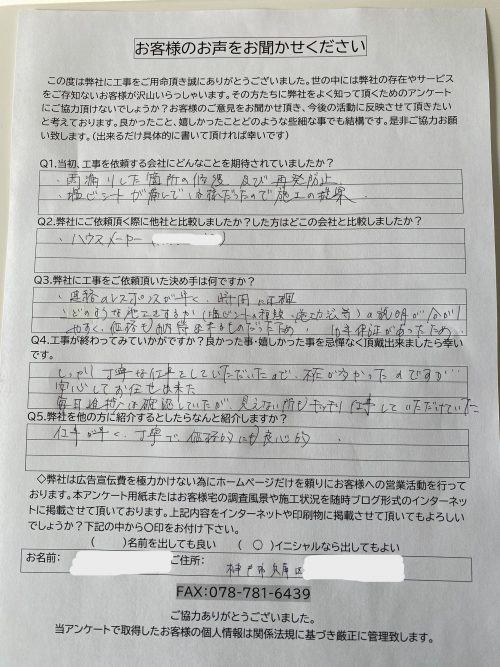 お客様のお声をお聞かせください
この度は弊社に工事をご用命頂き誠にありがとうございました。世の中には弊社の存在やサービス
をご存知ないお客様が沢山いらっしゃいます。その方たちに弊社をよく知って頂くためのアンケート
にご協力頂けないでしょうか？お客様のご意見をお聞かせ頂き、今後の活動に反映させて頂きたい
と考えております。良かったこと、嬉しかったことどのような些細な事でも結構です。是非ご協力お願
い致します。（出来るだけ具体的に書いて頂ければ幸いです）
Q1.当初、工事を依頼する会社にどんなことを期待されていましたか？
・雨漏りした箇所の修復 及び 再発防止
・塩ビシートが 様だったので 施工の提案
Q2.弊社にご依頼頂く際に他社と比較しましたか？した方はどこの会社と比較しましたか？
・ハウスメーカー（
Q3.弊社に工事をご依頼頂いた決め手は何ですか？
・連絡のレスポンスが早く、時間に正確
・どのような施工をするか（塩ビシートの接続・ ）の説明が分かり
やすく、価格も納得出来るものだったため、10年保証があったため
Q4.工事が終わってみていかがですか？良かった事・嬉しかった事を忌憚なく頂戴出来ましたら幸い
です。
しっかり丁寧な仕事をしていただいたので、 が多かったのですが
安心してお任せ出来た
毎日進捗は確認していたが、見えない所もキッチリ仕事していただけていた
Q5.弊社を他の方に紹介するとしたらなんと紹介しますか？
仕事が早く、丁寧で、価格的にも良心的
◇弊社は広告宣伝費を極力かけない為にホームページだけを頼りにお客様への営業活動を行って
おります。本アンケート用紙またはお客様宅の調査風景や施工状況を随時ブログ形式のインターネッ
トに掲載させて頂いております。上記内容をインターネットや印刷物に掲載させて頂いてもよろしい
でしょうか？下記の中から〇印をお付け下さい。
（ ）名前を出しても良い （ 〇 ）イニシャルなら出してもよい
お名前： ご住所： 神戸市兵庫区
FAX:078-781-6439
ご協力ありがとうございました。
当アンケートで取得したお客様の個人情報は関係法規に基づき厳正に管理致します。